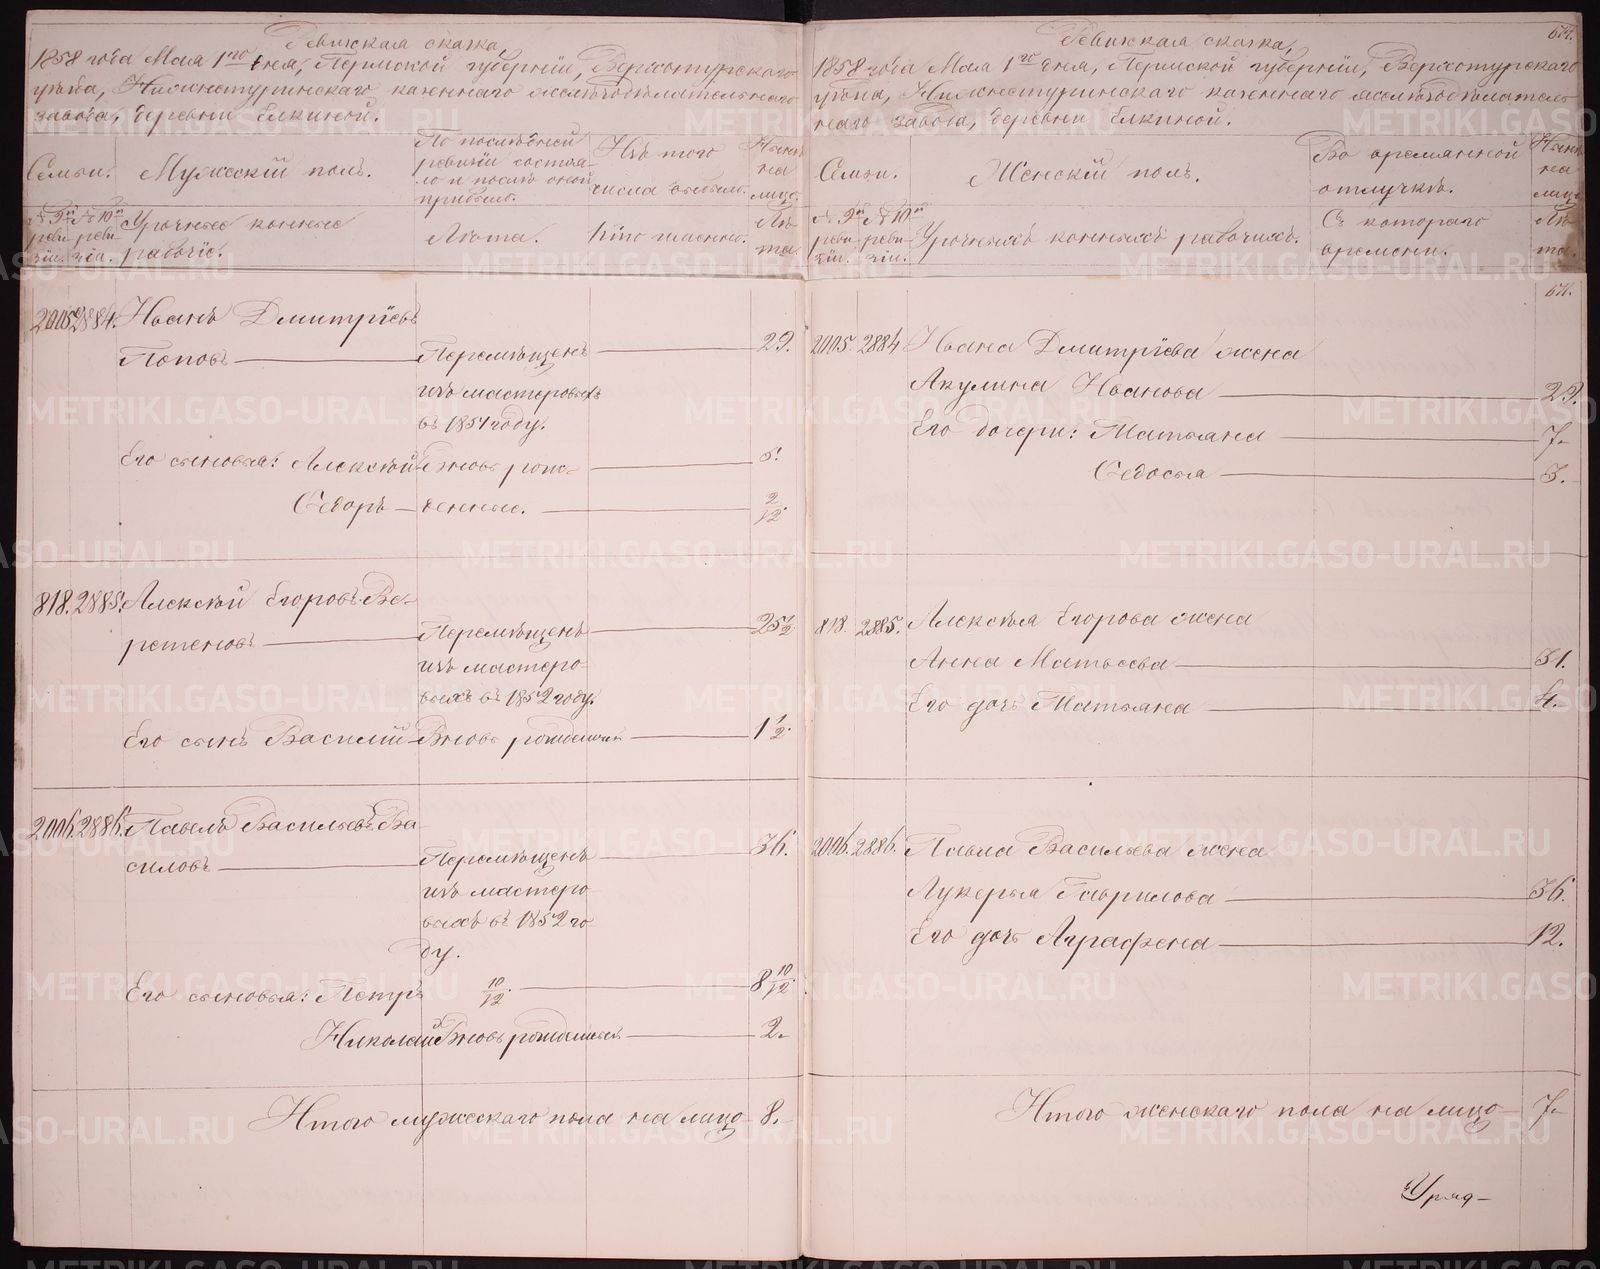 Ревижская сказка,
1858 года Мая 1го дня, Пермской губернiи, Верхотурскаго
уѣзда, Нижнетуринскаго казеннаго желѣзодѣлательнаго
завода, деревни Елкиной.
Семьи.
Мужескiй полъ.
По послѣдней
ревизiи состоя-
ло и послѣ оной
прибыло.
Изъ того
числа выбыло.
Нынѣ
на
лицо.
№ 9й № 10й
реви- реви-
зiи. зiи.
Урочные конные
рабочiе.
Лѣта.
Кто именно.
Лѣ
та.
2005 2884. Иванъ Дмитрiевъ
Поповъ Перемѣщенъ 29.
изъ мастеровыхъ
въ 1851 году.
Его сыновья: Алексѣй Вновь рож- 5.
Ѳедоръ денные. 2/12
818. 2885. Алексѣй Егоровъ Ве-
ретеновъ Перемѣщенъ 25 1/2
изъ мастеро
выхъ въ 1852 году.
Его сынъ Василiй Вновь рожденный 1 1/2
2006. 2886. Павелъ Васильевъ Ва-
силовъ Перемѣщенъ 36.
изъ мастеро
выхъ въ 1852 го
ду.
Его сыновья: Петръ 10/12 8 10/12
Николай Вновь рожденный 2.
Итого мужескаго пола на лицо 8.
Ревижская сказка,
1858 года Мая 1го дня, Пермской губернiи, Верхотурскаго
уѣзда, Нижнетуринскаго казеннаго желѣзодѣлатель
наго завода, деревни Елкиной.
Семьи.
Женскiй полъ.
Во временной
отлучкѣ.
Нынѣ
на
лицо.
№ 9й № 10й
реви- реви-
зiи. зiи.
Урочныхъ конныхъ рабочихъ.
Съ котораго
времени.
Лѣ
та.
2005. 2884 Ивана Дмитрiева жена
Акулина Иванова 29.
Его дочери: Татьяна 7.
Ѳедосья 3.
818. 2885. Алексѣя Егорова жена
Анна Матвеева 31.
Его дочь Татьяна 4.
2006. 2886. Павла Васильева жена
Лукерья Гаврилова 36.
Его дочь Аграфена 12.
Итого женскаго пола на лицо 7
Уряд-
METRIKI.GASO-URAL.RU